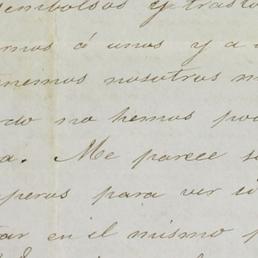 sembolsos y trasto
rnos ó unos y a
nemos nosotros m
rdo no hemos pod
a. Me parece s
peras para ver si
tar en el mismo p